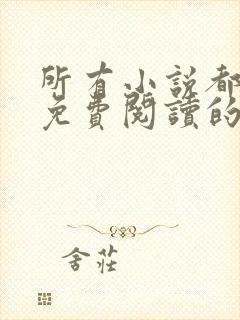 所有小説都
免費閱讀的
舍莊